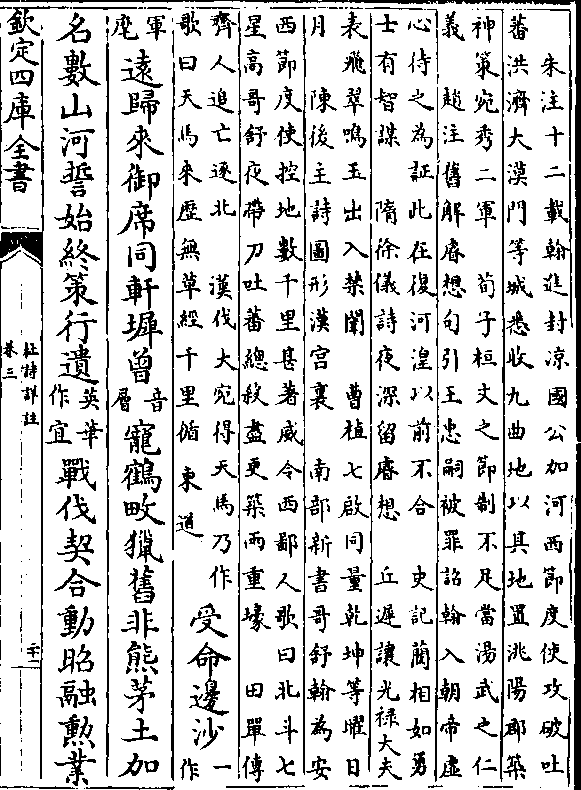 朱注十二載翰進封涼國公加河西節度使攻破吐
蕃洪濟大漠門等城悉收九曲地以其地置洮陽郡築
神策宛秀二軍　荀子桓文之節制不足當湯武之仁
義　趙注舊解睿想句引王忠嗣被罪詔翰入朝帝虛
心待之為証此在復河湟以前不合　史記藺相如勇
士有智謀　隋徐儀詩夜深留睿想　丘遲讓光禄大夫
表飛翠鳴玉出入禁闥　曹植七啟同量乾坤等曜日
月　陳後主詩圖形漢宫裏　南部新書哥舒翰為安
西節度使控地數千里甚著威令西鄙人歌曰北斗七
星高哥舒夜帶刀吐蕃總殺盡更築兩重壕　田單傳
齊人追亡逐北　漢伐大宛得天馬乃作
歌曰天馬來歷無草經千里循東道
受命邊沙一作
軍麾遠歸來御席同軒墀曾音層寵鶴畋獵舊非熊茅土加
名數山河誓始終策行遺英華作宜戰伐契合動昭融勲業
欽定四庫全書
杜詩詳註
卷三